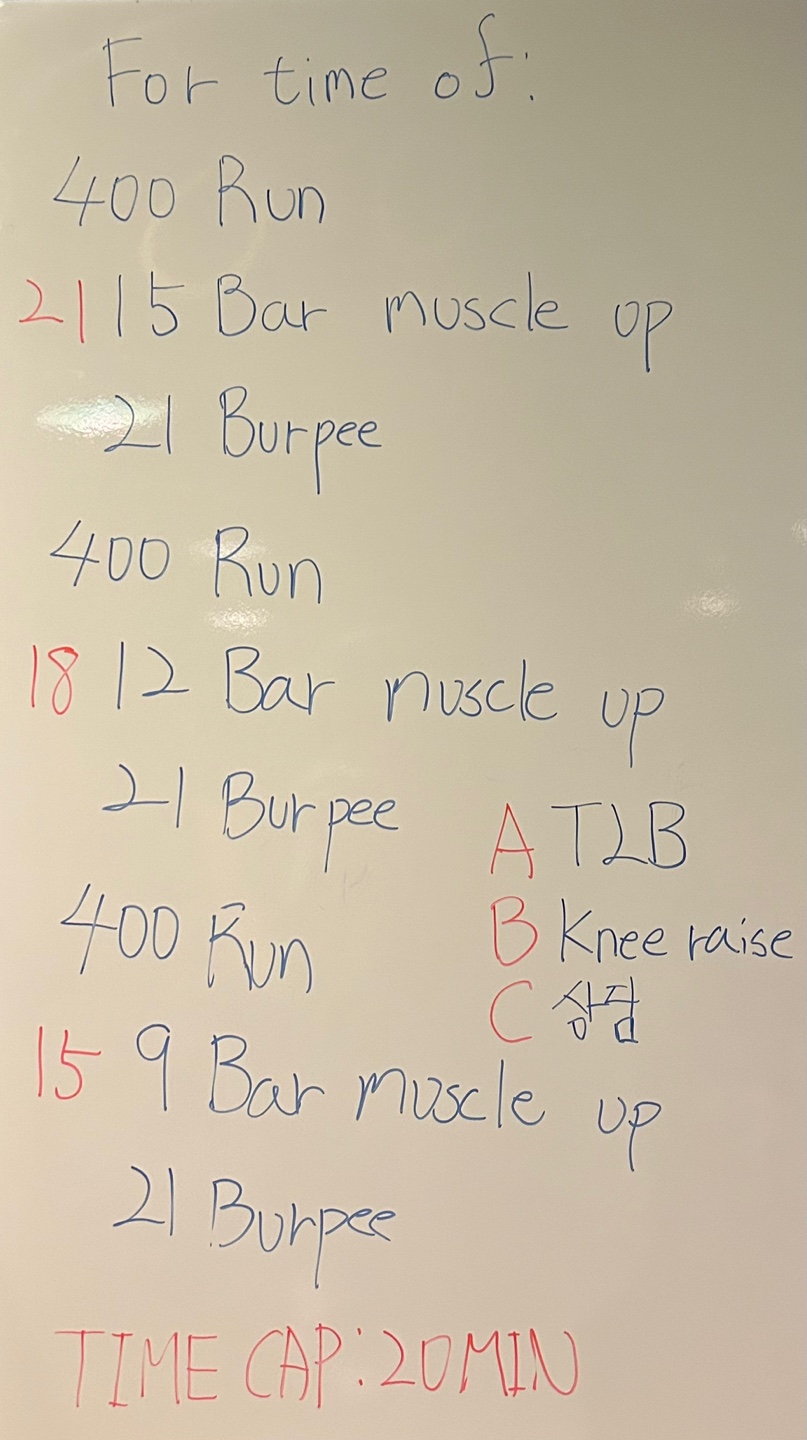 For time of:
400 Run
21 15 Bar muscle up
21 Burpee
400 Run
18 12 Bar muscle up
21 Burpee
A T2B
400 Run
B Knee raise
C 싱덤
15 9 Bar muscle up
21 Burpee
TIME CAP: 20MIN